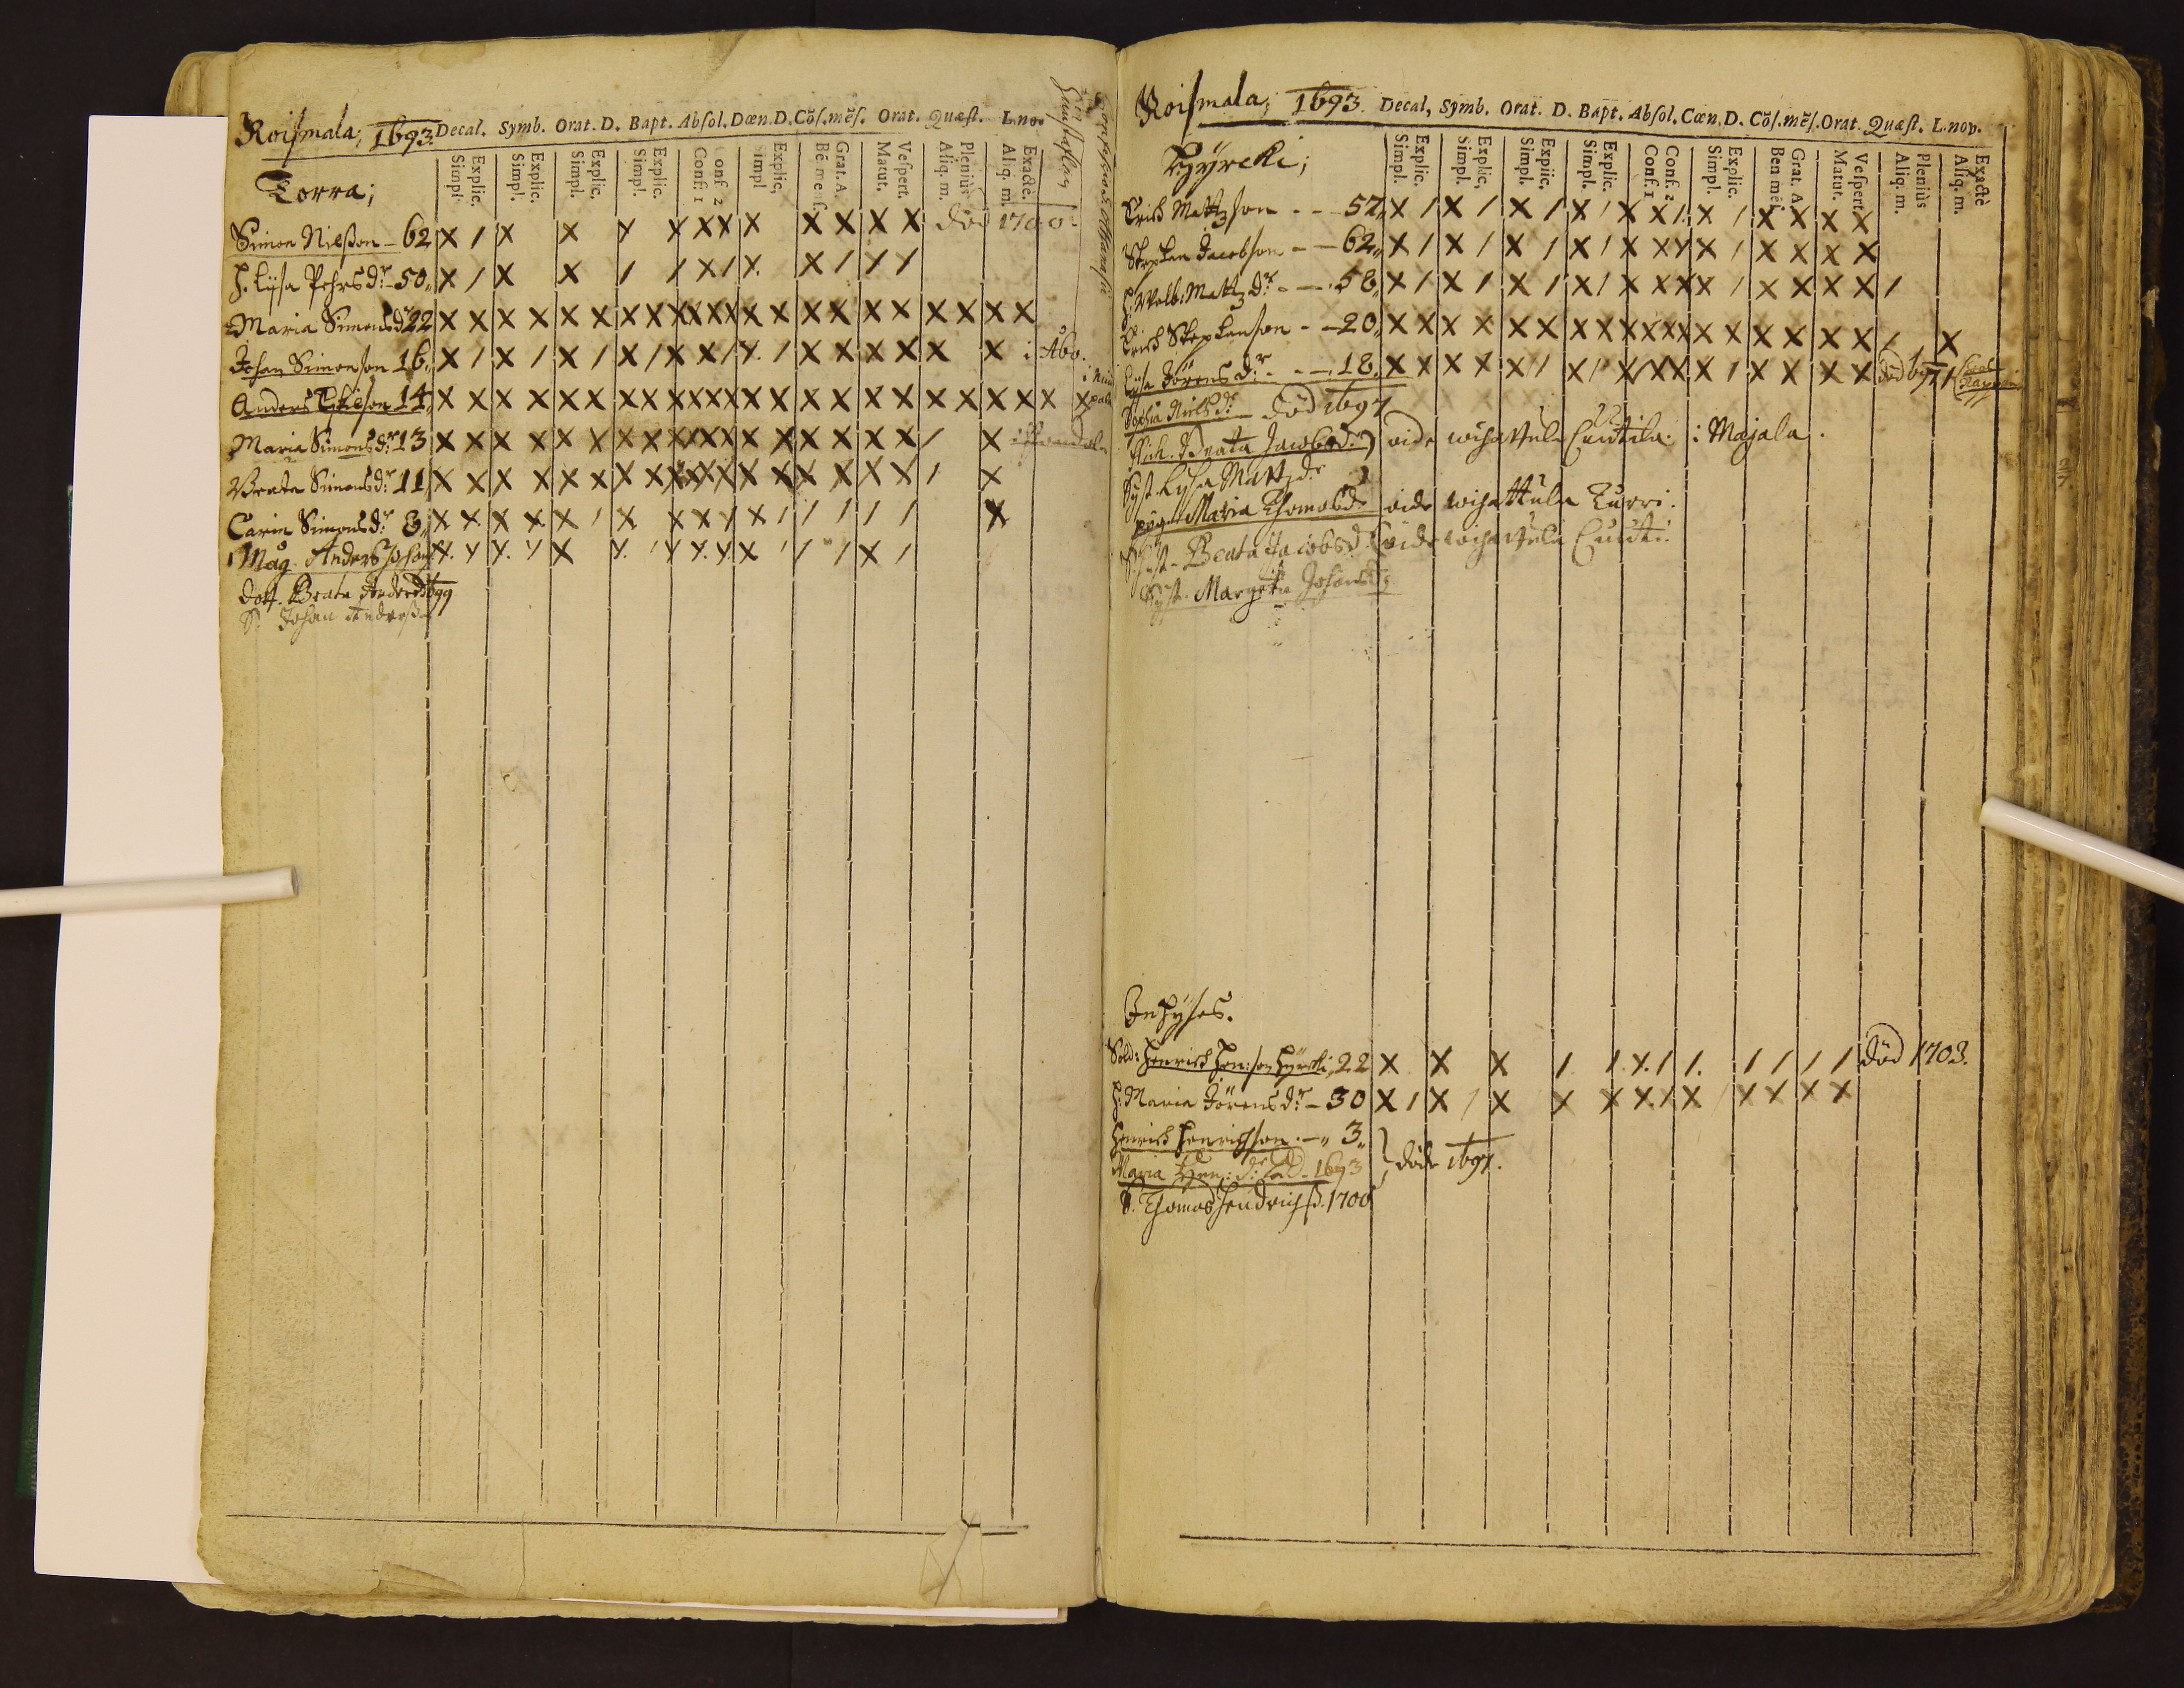 Roismala; 1693. Decal. Symb. Orat. D. Bapt. Absol. Dœn. D. Cōs. mēs. Orat. Quæst. L. nov
Simpl. Explic. Simpl. Explic. Simpl. Explic. Simpl. Explic. Conf. 1 Conf 2 Simpl Explic. Bē mens. Grat. A. Matut. Vespert. Aliq. m. Pleniùs Aliq. m. Exactè.
Torra;
Simon Nilsson - 62 X / X X Y X X X X X X X X död 1700.
H. Lijsa Pehrs dr. - 50 X / X X / / X / X. X / / /
Maria Simons dr 22 X X X X X X X X X X X X X X X X X X X X X X
Johan Simonson 16 X / X / X / X / X X / Y. / X X X X X X i Åbo.
Anders 14 X X X X X X X X X X X X X X X X X X X X X X X
Maria Simons dr 13 X X X X X X X X X X X X X X X X X X / X
Beata Simons dr 11 X X X X X X X X X X X X X X X X X X / X
Carin Simons dr 8 X X X X X / X X X Y X / / / / / X
Måg. Anders Johans X. Y Y. Y X Y. / Y Y. Y. X / / / X /
dott. Beata Anders d 1699
S. Johan Anderss
Roismala; 1693. Decal, Symb. Orat. D. Bapt. Absol. Cœn. D. Cōs. mēs. Orat. Quæst. L. nov.
Simpl. Explic. Simpl. Explic, Simpl. Expiic, Simpl. Explic. Conf. 1 Conf. 2 Simpl. Explic. Ben mēs Grat. A. Matut. Vespert. Aliq. m. Pleniùs Aliq. m. Exactè
Hyrcki;
Erich Mattzson - - 57 X / X / X / X / X X / X / X X X X
Stephan Jacobson - - 62 X / X / X / X / X X Y X / X X X X
H. Walb: Mattz dr. - - 58 X / X / X / X / X X X X / X X X X /
Erich Stephanson - - 20 X X X X X X X X X X X X X X X X X / X
Lijsa Jörens dr. - - 18 X X X X X / X / X X X X / X X X X död 1697
Sophia Nils dr. död 1697
Pich. Beata Jacobs d. vide wihattula i Majala.
Syst. Lysa Matz dr
pijga Maria Thomæ dr vide wihattula Turri.
Syst. Beata Jacobs d. vide wihattula
Syst. Margeta Johans d
Inhyses.
Sold: Henrich Hen: son Hyrcki 22 X X X / / X / / / / / / död 1703.
H. Maria Jörens dr. - 30 X / X / X X X X / X / X X X X
Henrich Henrichson - 3.
Maria Hen: dr. död - 1693 } döde 1697.
S. Thomas Hendrichs. 1700